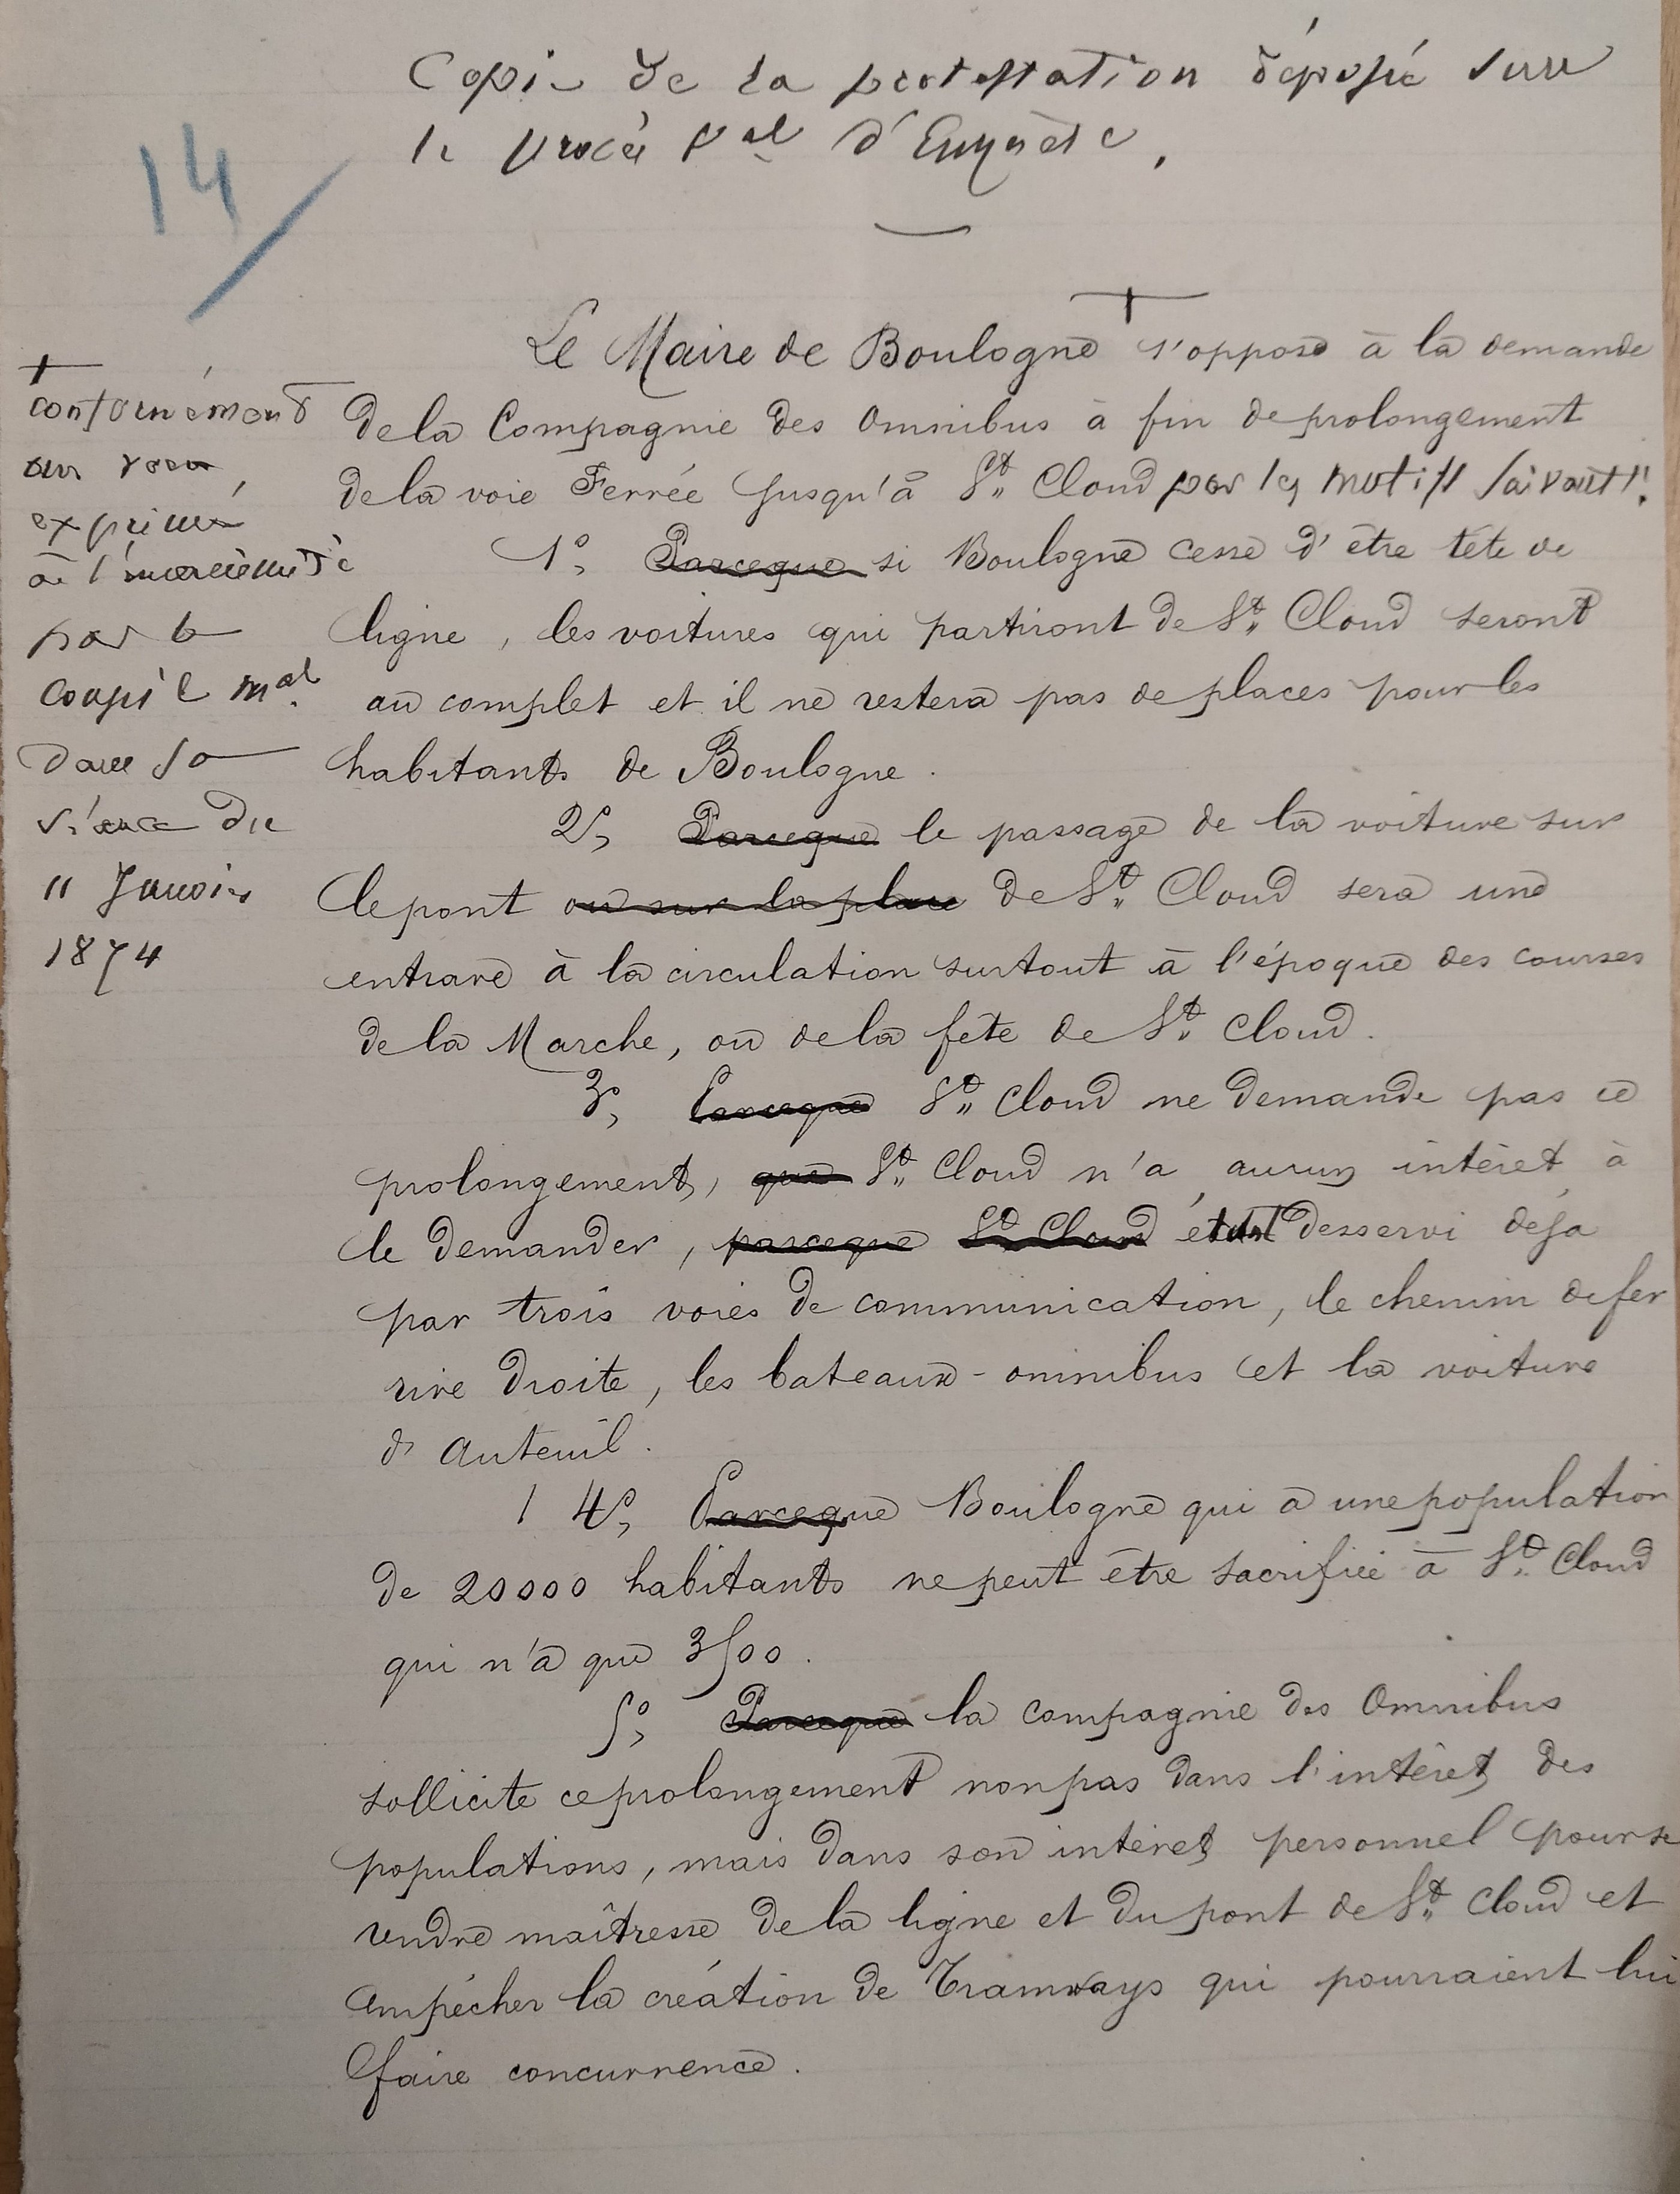 Copie de la protestation déposée sur
le procès v.al d'Enquête.
14
Le Maire de Boulogne s'oppose à la demande
de la Compagnie des Omnibus à fin de prolongement
de la voie Ferrée jusqu'à St. Cloud par les motifs suivants:
1o, Parceque si Boulogne cesse d'être tête de
ligne, les voitures qui partiront de St. Cloud seront
au complet et il ne restera pas de places pour les
habitants de Boulogne.
2o, Parceque le passage de la voiture sur
le pont ou sur la place de St. Cloud sera une
entrave à la circulation surtout à l'époque des courses
de la Marche, ou de la fête de St. Cloud.
3o, Parceque St. Cloud ne demande pas ce
prolongement, que St. Cloud n'a aucun intérêt à
le demander, parceque St. Cloud étant desservi déja
par trois voies de communication, le chemin de fer
rive droite, les bateaux-omnibus et la voiture
d'Auteuil.
4o, Parceque Boulogne qui a une population
de 20000 habitants ne peut être sacrifiée à St. Cloud
qui n'a que 3500.
5o, Parceque la compagnie des Omnibus
sollicite ce prolongement non pas dans l'intérêt des
populations, mais dans son intérêt personnel pour se
rendre maîtresse de la ligne et du pont de St. Cloud et
empêcher la création de Tramways qui pourraient lui
faire concurrence.
+
conformément
au vœu
exprimé
à l'unanimité
par le
Conseil mal.
dans sa
séance du
11 Janvier
1874